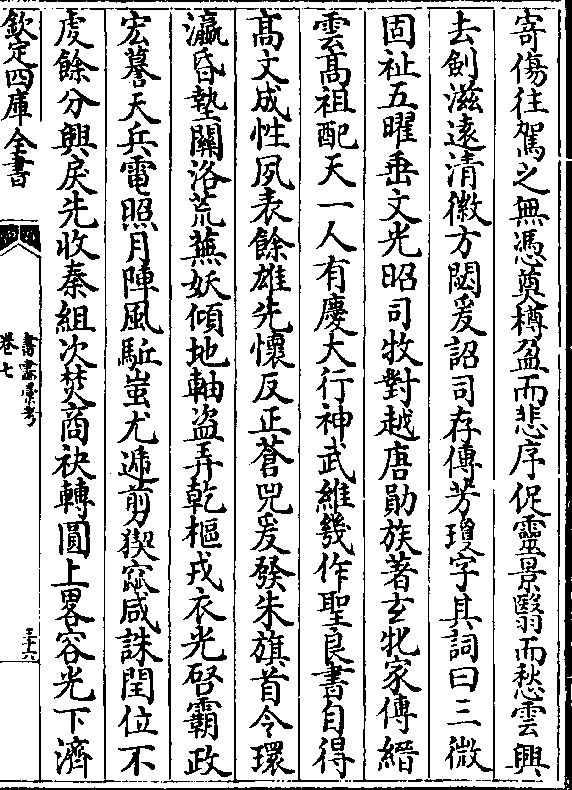 寄傷往駕之無憑奠樽盈而悲序促靈景翳而愁雲興
去劍滋逺清徽方閟爰詔司存傳芳瓊字其詞曰三微
固祉五曜垂文光昭司牧對越唐勛族著玄牝家傳縉
雲髙祖配天一人有慶大行神武維幾作聖良書自得
髙文成性夙表餘雄先懷反正蒼兕爰發朱旗首令環
瀛昏墊關洛荒蕪妖傾地軸盜弄乾樞戎衣光啓霸政
宏謩天兵電照月陣風駈蚩尤遞剪猰窳咸誅閏位不
虔餘分興戾先收秦組次焚商袂轉圓上畧容光下濟
欽定四庫全書
書畫彙考
卷七
三十六